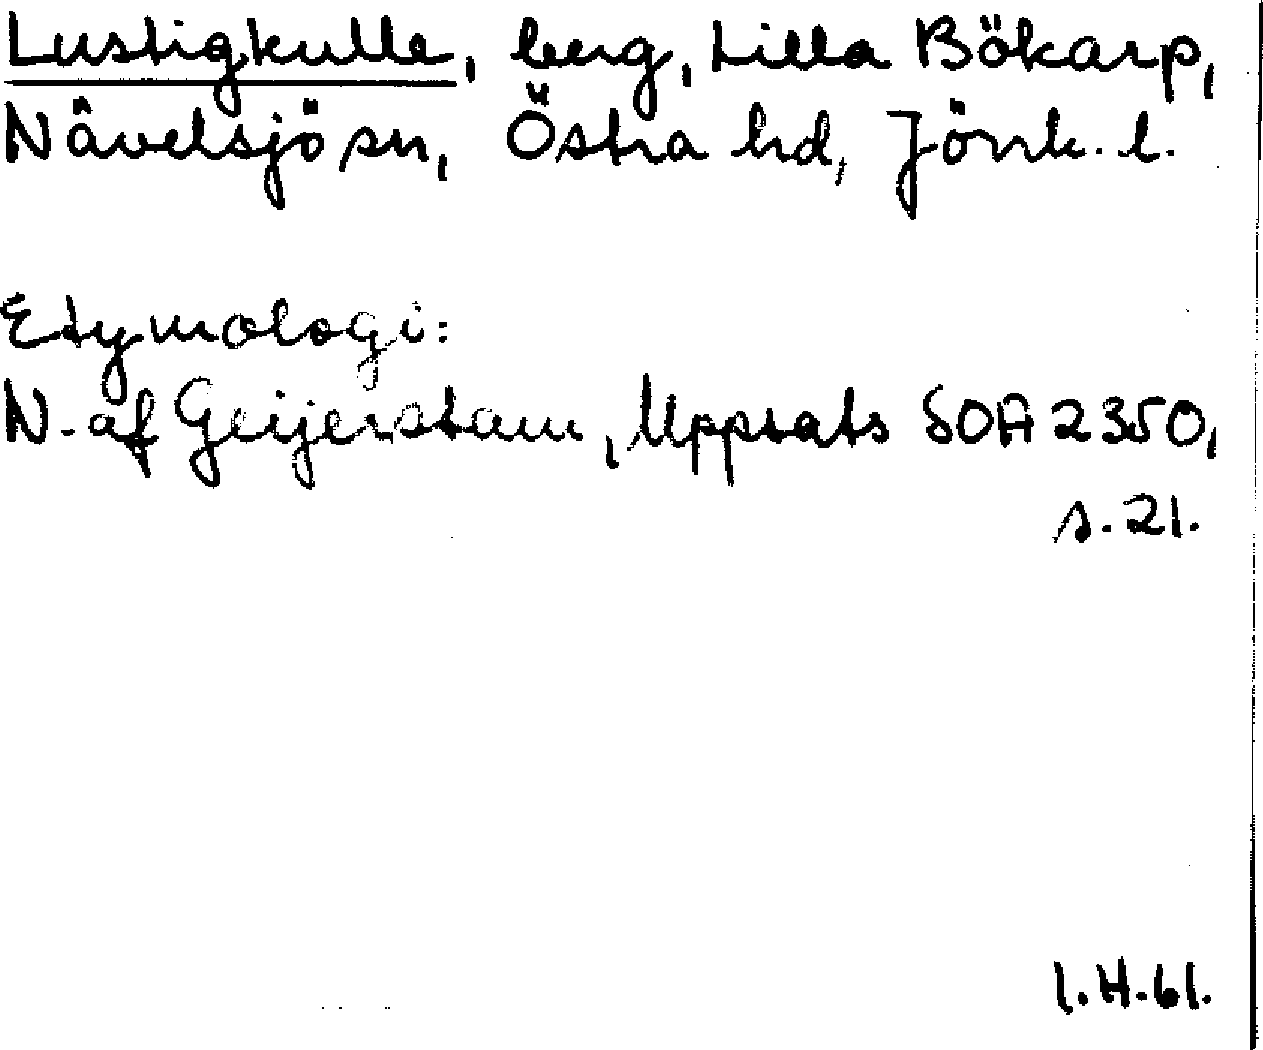 Lustigkulle, berg, Lilla Bökarp,
Nävelsjö sn, Östra hd, Jönk. l.
Etymologi:
N. af Geijerstam, Uppsats SOA 2350,
s. 21.
I.H.61.